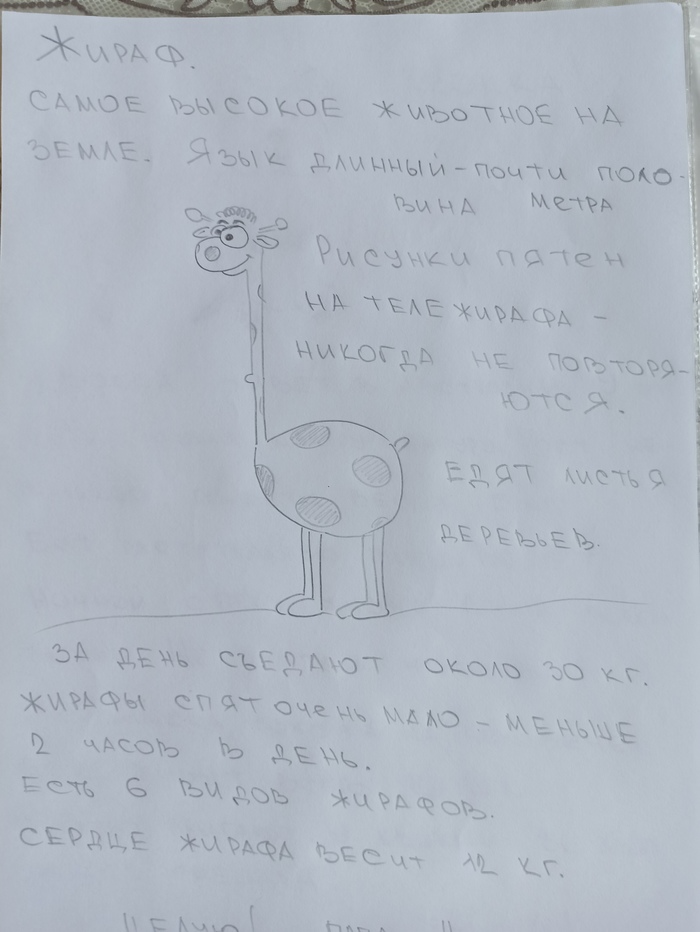 Жираф.
САМОЕ ВЫСОКОЕ ЖИВОТНОЕ НА
ЗЕМЛЕ. ЯЗЫК ДЛИННЫЙ - ПОЧТИ ПОЛО-
ВИНА МЕТРА
РИСУНКИ ПЯТЕН
НА ТЕЛЕ ЖИРАФА -
НИКОГДА НЕ ПОВТОРЯ-
ЮТСЯ.
ЕДЯТ ЛИСТЬЯ
ДЕРЕВЬЕВ.
ЗА ДЕНЬ СЪЕДАЮТ ОКОЛО 30 КГ.
ЖИРАФЫ СПЯТ ОЧЕНЬ МАЛО - МЕНЬШЕ
2 ЧАСОВ В ДЕНЬ.
ЕСТЬ 6 ВИДОВ ЖИРАФОВ.
СЕРДЦЕ ЖИРАФА ВЕСИТ 12 КГ.